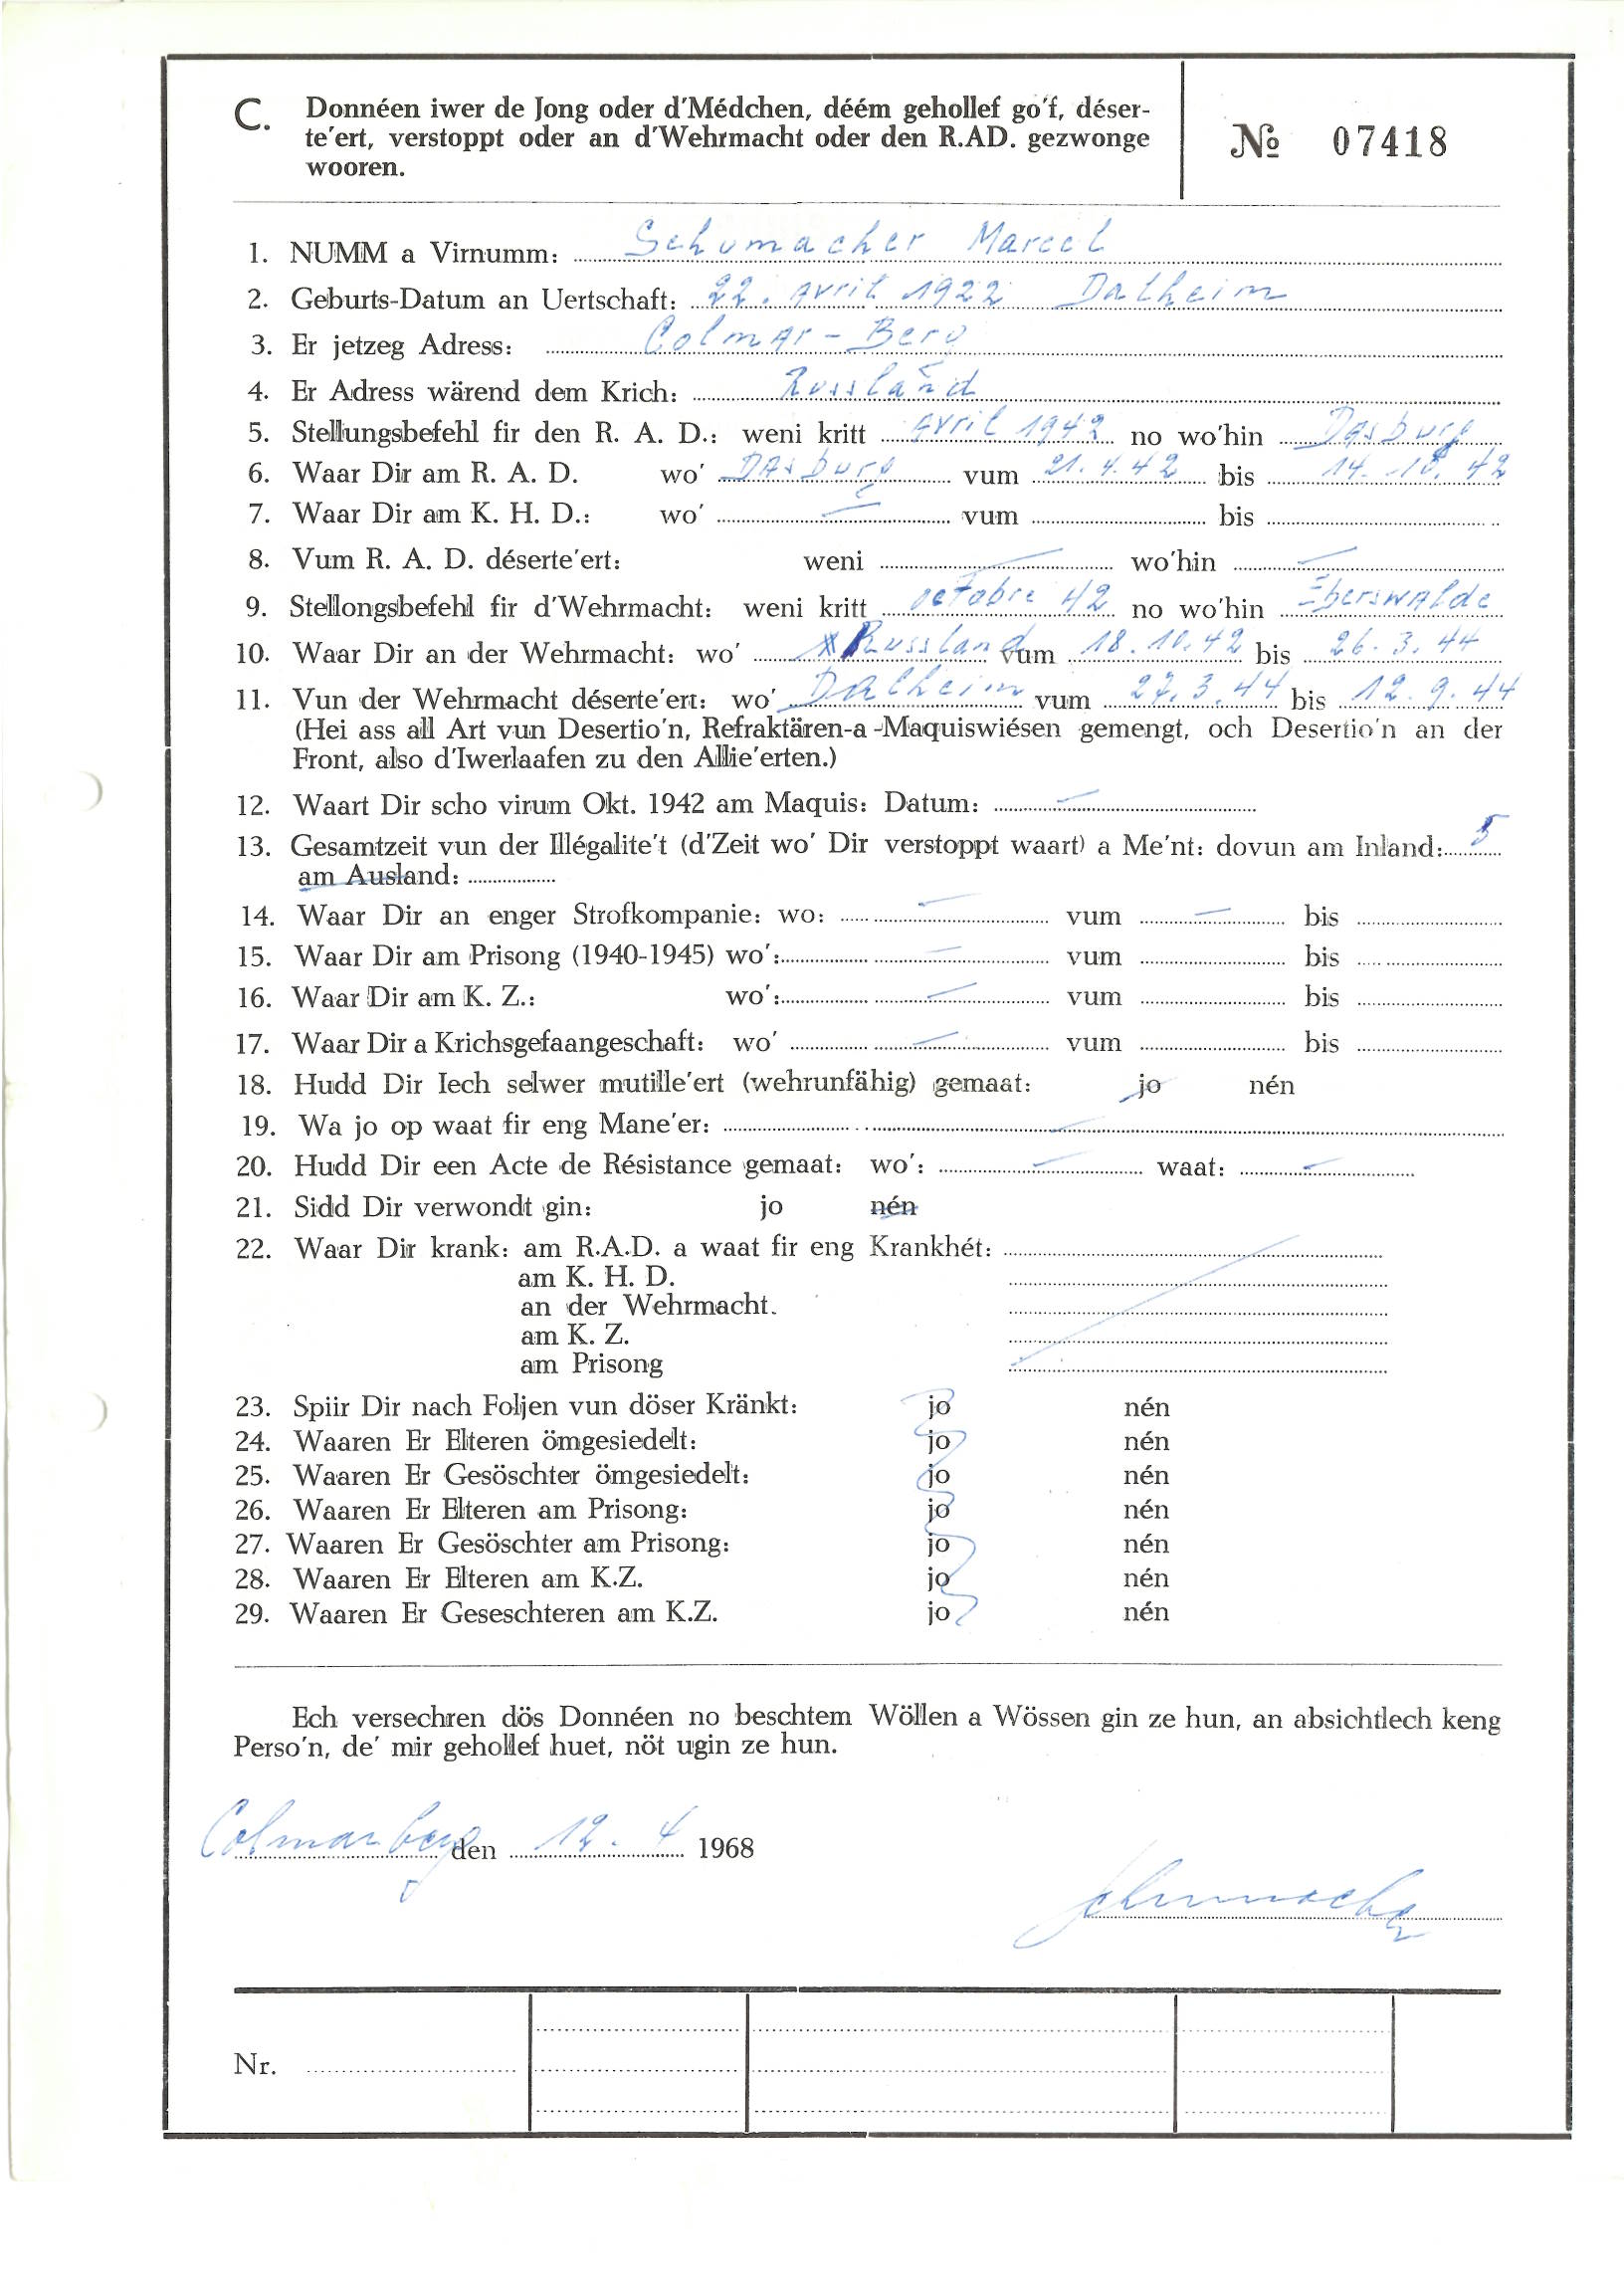 C. Donnéen iwer de Jong oder d'Médchen, déém gehollef go'f, déser-
te'ert, verstoppt oder an d'Wehrmacht oder den R.AD. gezwonge
wooren.
№ 07418
1. NUMM a Virnumm: Schumacher Marcel
2. Geburts-Datum an Uertschaft: 22. Avril 1922 Dalheim
3. Er jetzeg Adress: Colmar-Berg
4. Er Adress wärend dem Krich: Russland
5. Stellungsbefehl fir den R. A. D.: weni kritt Avril 1942 no wo'hin Dasburg
6. Waar Dir am R. A. D. wo' Dasburg vum 21.4.42 bis 14.10.42
7. Waar Dir am K. H. D.: wo' — vum bis
8. Vum R. A. D. déserte'ert: weni — wo'hin —
9. Stellongsbefehl fir d'Wehrmacht: weni kritt octobre 42 no wo'hin Eberswalde
10. Waar Dir an der Wehrmacht: wo' Russland vum 18.10.42 bis 26.3.44
11. Vun der Wehrmacht déserte'ert: wo' Dalheim vum 27.3.44 bis 12.9.44
(Hei ass all Art vun Desertio'n, Refraktären-a -Maquiswiésen gemengt, och Desertio'n an der
Front, also d'Iwerlaafen zu den Allie'erten.)
12. Waart Dir scho virum Okt. 1942 am Maquis: Datum: —
13. Gesamtzeit vun der Illégalite't (d'Zeit wo' Dir verstoppt waart) a Me'nt: dovun am Inland: 5
am Ausland:
14. Waar Dir an enger Strofkompanie: wo: — vum — bis
15. Waar Dir am Prisong (1940-1945) wo': — vum bis
16. Waar Dir am K. Z.: wo': — vum bis
17. Waar Dir a Krichsgefaangeschaft: wo' — vum bis
18. Hudd Dir Iech selwer mutille'ert (wehrunfähig) gemaat: jo nén
19. Wa jo op waat fir eng Mane'er: —
20. Hudd Dir een Acte de Résistance gemaat: wo': — waat: —
21. Sidd Dir verwondt gin: jo nén
22. Waar Dir krank: am R.A.D. a waat fir eng Krankhét:
am K. H. D.
an der Wehrmacht.
am K. Z.
am Prisong
23. Spiir Dir nach Foljen vun döser Kränkt: jo nén
24. Waaren Er Elteren ömgesiedelt: jo nén
25. Waaren Er Gesöschter ömgesiedelt: jo nén
26. Waaren Er Elteren am Prisong: jo nén
27. Waaren Er Gesöschter am Prisong: jo nén
28. Waaren Er Elteren am K.Z. jo nén
29. Waaren Er Geseschteren am K.Z. jo nén
Ech versechren dös Donnéen no beschtem Wöllen a Wössen gin ze hun, an absichtlech keng
Perso'n, de' mir gehollef huet, nöt ugin ze hun.
Colmarberg den 12.4 1968
Schumacher
Nr.